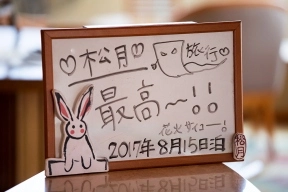 ♡松月 旅行♡
最高〜!!
花火サイコー!
2017年8月15日
松月